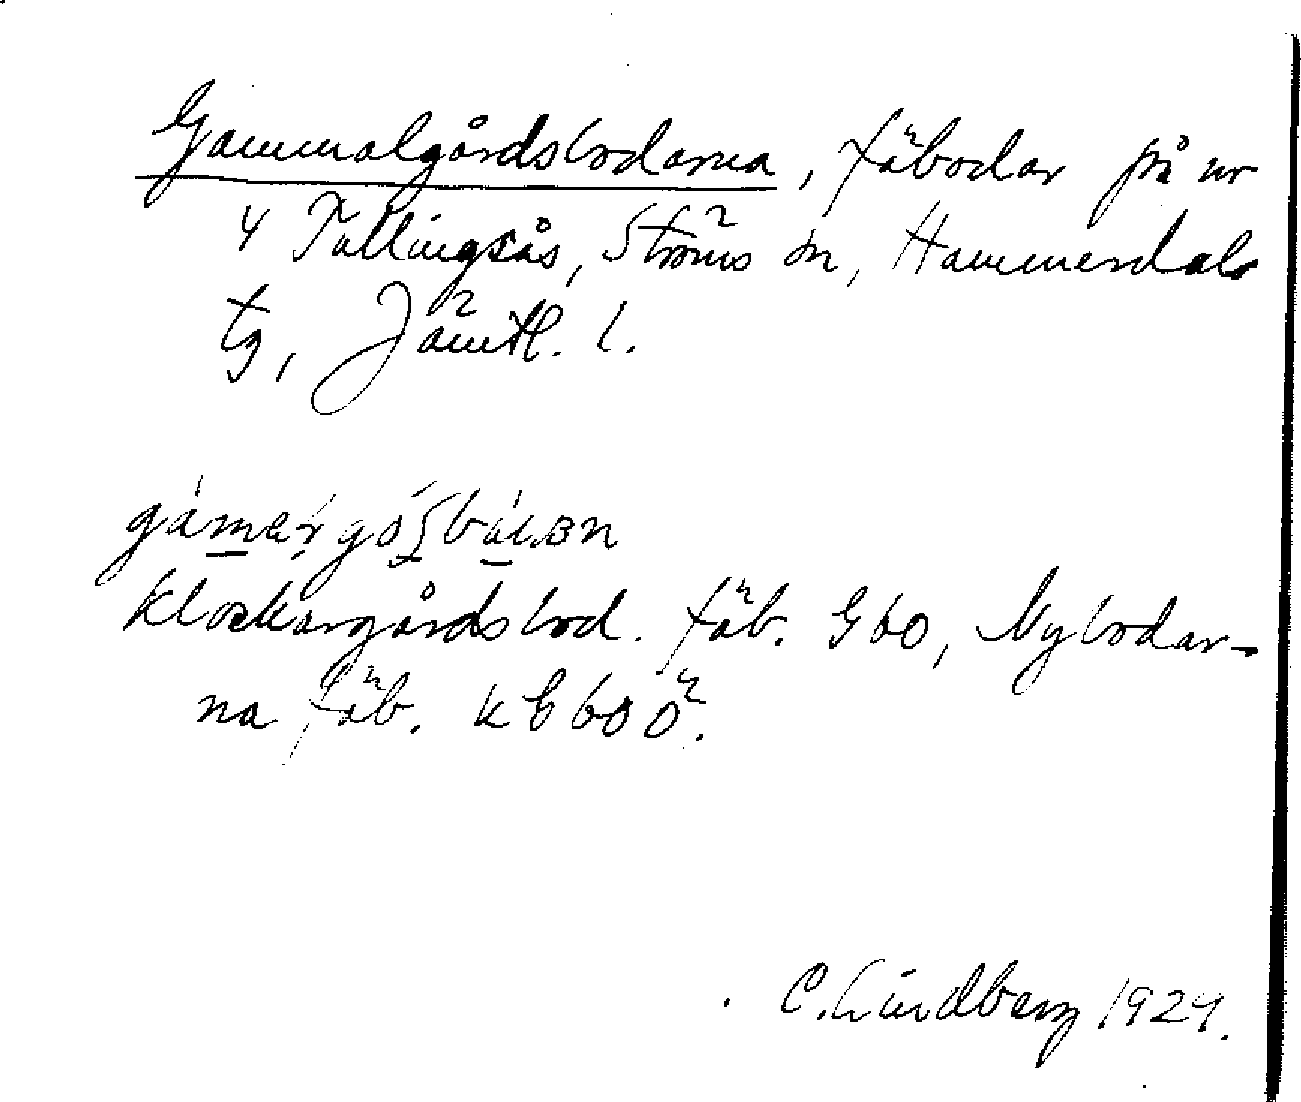 Gammalgårdsbodarna, fäbodar på nr
4 Tullingsås, Ströms sn, Hammerdals
tg, Jämtl. l.
Klockargårdsbod. fäb. Gbo, Nybodar-
na fäb. k G bo ö.
C. Lindberg 1929.